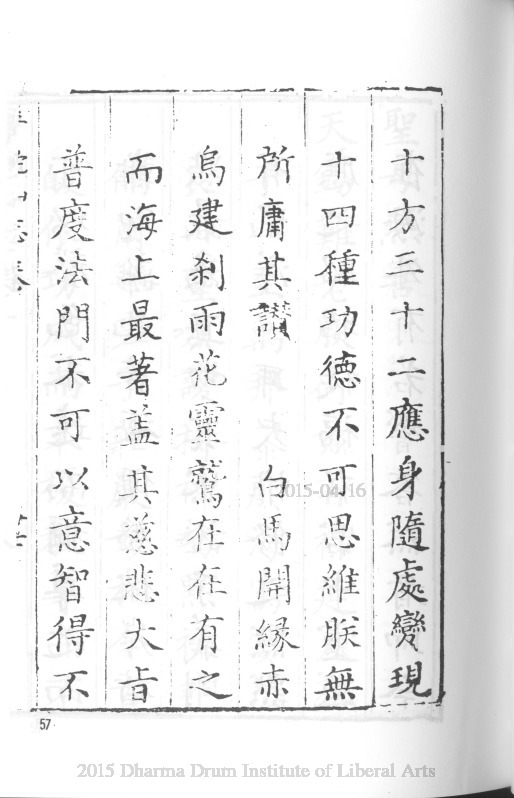 十方三十二應身隨處變現
十四種功德不可思維朕無
所庸其讃 白馬開緣赤
烏建刹雨花靈鷲在在有之
而海上最著盖其慈悲大旨
普度法門不可以意智得不
志卷
57
2015-04-16
2015 Dharma Drum Institute of Liberal Arts